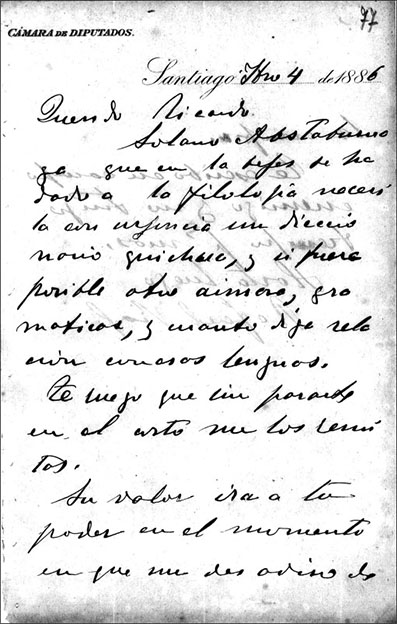 77
CÁMARA DE DIPUTADOS.
Santiago 4 de 1886
Querido Ricardo.
Solano Astaburua
ga que en la vejes se ha
dado a la filología necesi
ta con urjencia un diccio
nario quichua, y si fuera
posible otro aimara, gra
maticas, y cuanto diga rela
ción con esas lenguas.
Te ruego que sin pararte
en el costo me los remi
tas.
Su valor ira a tu
poder en el momento
en que me des aviso de